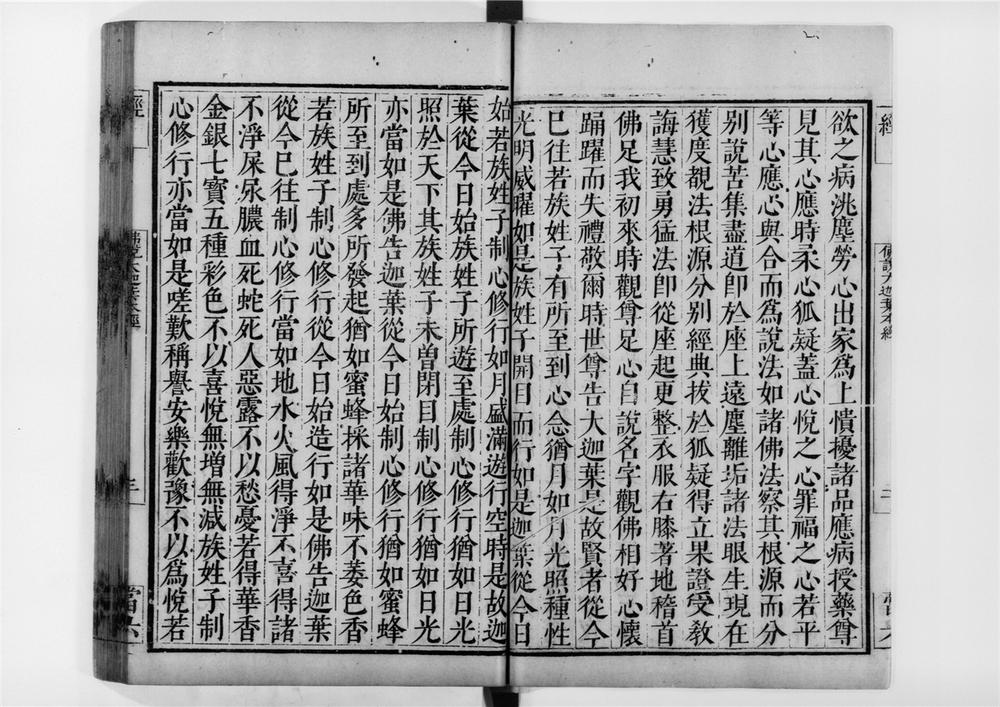 欲之病洮塵勞心出家爲上憒擾諸品應病授藥尊
見其心應時柔心狐疑蓋心悅之心罪福之心若平
等心應心與合而爲說法如諸佛法察其根源而分
別說苦集盡道卽於座上遠塵離垢諸法眼生現在
獲度覩法根源分別經典拔於狐疑得立果證受敎
誨慧致勇猛法卽從座起更整衣服右膝著地稽首
佛足我初來時觀尊足心自說名字觀佛相好心懷
踊躍而失禮敬爾時世尊告大迦葉是故賢者從今
已往若族姓子有所至到心念猶月如月光照種性
光明威曜如是族姓子開目而行如是迦葉從今日
始若族姓子制心修行如月盛滿遊行空時是故迦
葉從今日始族姓子所遊至處制心修行猶如日光
照於天下其族姓子未曾閉目制心修行猶如日光
亦當如是佛告迦葉從今日始制心修行猶如蜜蜂
所至到處多所發起猶如蜜蜂採諸華味不萎色香
若族姓子制心修行從今日始造行如是佛告迦葉
從今已往制心修行當如地水火風得淨不喜得諸
不淨屎尿膿血死蛇死人惡露不以愁憂若得華香
金銀七寶五種彩色不以喜悅無增無減族姓子制
心修行亦當如是嗟歎稱譽安樂歡豫不以爲悅若
經
佛說大迦葉本經
三
當六